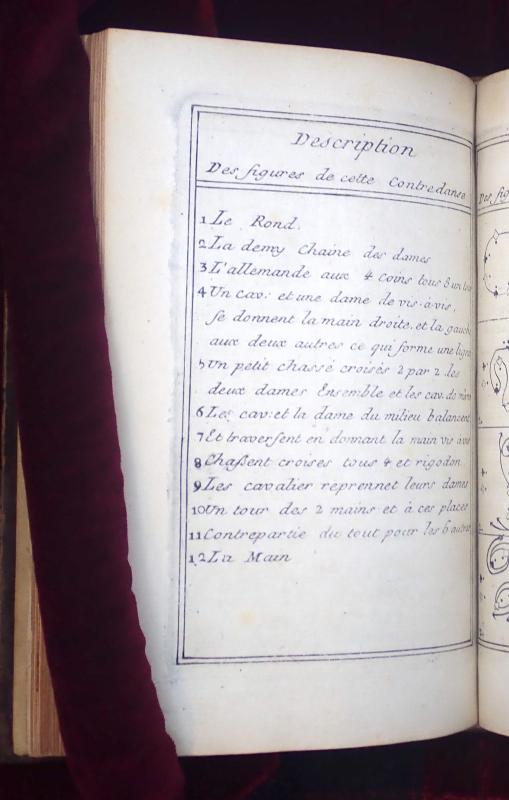 Description
Des figures de cette Contredanse
1 Le Rond.
2 La demy Chaine des dames
3 L'allemande aux 4 coins tous 8 un tour
4 Un cav: et une dame de vis-à-vis,
se donnent la main droite, et la gauche
aux deux autres ce qui forme une ligne
5 Un petit chassé croisés 2 par 2 les
deux dames Ensemble et les cav. de même
6 Les cav: et la dame du milieu balancent
7 Et traversent en donnant la main vis à vis
8 Chassent croises tous 4 et rigodon
9 Les cavalier reprennet leurs dames
10 Un tour des 2 mains et à ces places
11 Contrepartie du tout pour les 6 autres
12 La Main
Des fig